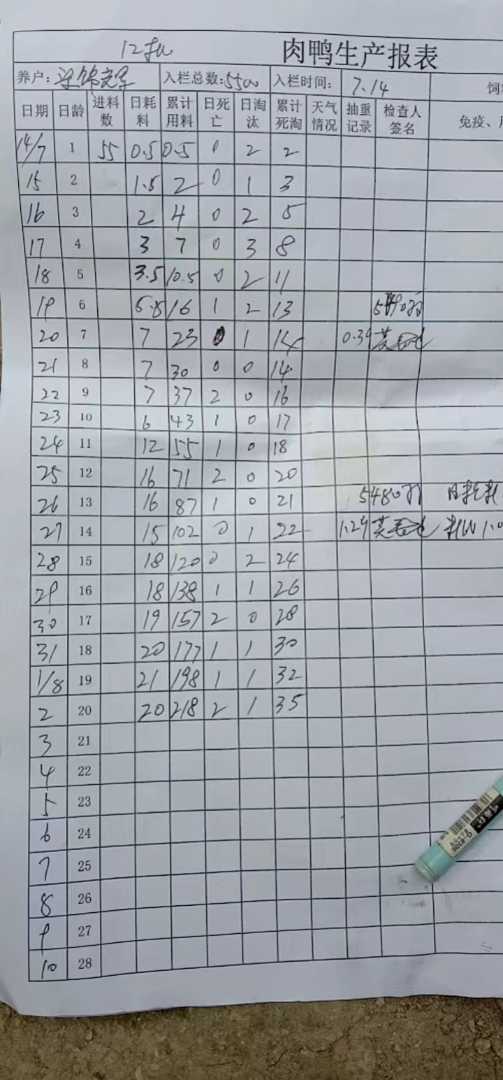 12批 肉鸭生产报表
养户: 入栏总数:5500 入栏时间: 7.14 饲
日期 日龄 进料数 日耗料 累计用料 日死亡 日淘汰 累计死淘 天气情况 抽重记录 检查人签名 免疫、
14/7 1 55 0.5 0.5 0 2 2
15 2 1.5 2 0 1 3
16 3 2 4 0 2 5
17 4 3 7 0 3 8
18 5 3.5 10.5 0 2 11
19 6 5.5 16 1 2 13
20 7 7 23 0 1 14 0.39
21 8 7 30 0 0 14
22 9 7 37 2 0 16
23 10 6 43 1 0 17
24 11 12 55 1 0 18
25 12 16 71 2 0 20
26 13 16 87 1 0 21 5480羽 日耗料
27 14 15 102 0 1 22 1.29
28 15 18 120 0 2 24
29 16 18 138 1 1 26
30 17 19 157 2 0 28
31 18 20 177 1 1 30
1/8 19 21 198 1 1 32
2 20 20 218 2 1 35
3 21
4 22
5 23
6 24
7 25
8 26
9 27
10 28